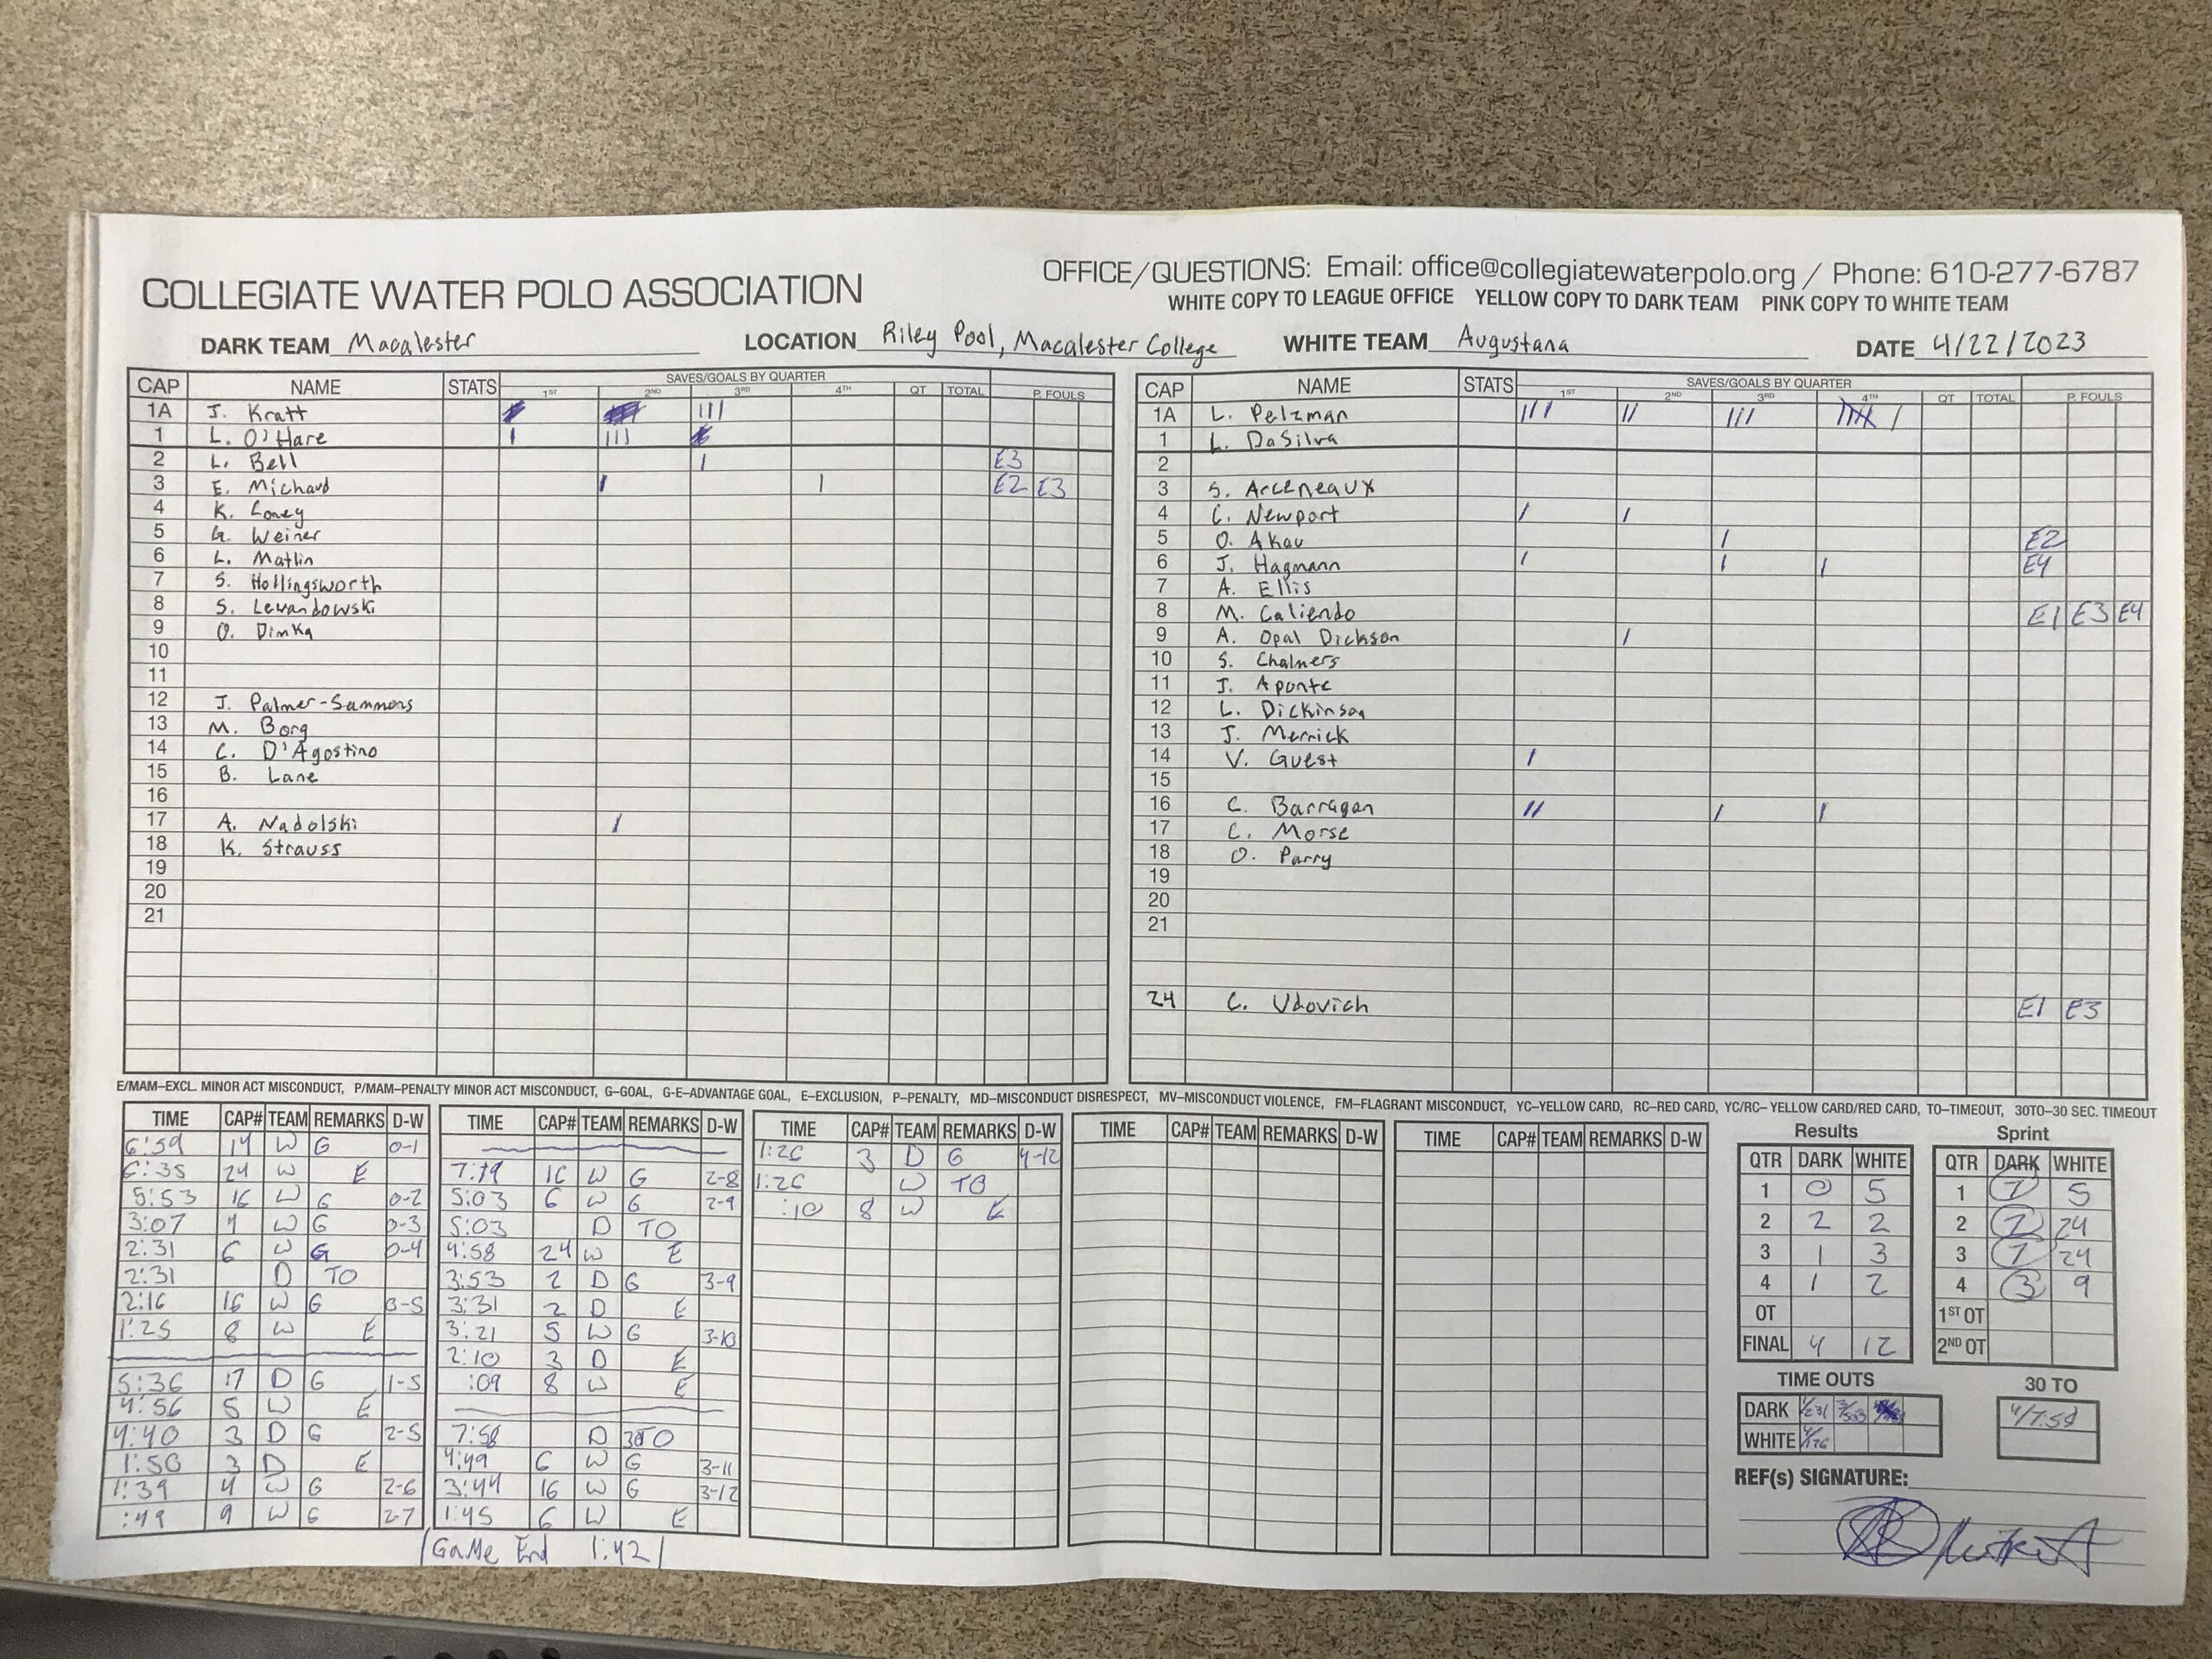 COLLEGIATE WATER POLO ASSOCIATION
OFFICE/QUESTIONS: Email: office@collegiatewaterpolo.org / Phone: 610-277-6787
WHITE COPY TO LEAGUE OFFICE YELLOW COPY TO DARK TEAM PINK COPY TO WHITE TEAM
DARK TEAM Macalester LOCATION Riley Pool, Macalester College WHITE TEAM Augustana DATE 4/22/2023
CAP NAME STATS SAVES/GOALS BY QUARTER 1ST 2ND 3RD 4TH OT TOTAL P. FOULS
1A J. Kratt III
1 L. O'Hare I III
2 L. Bell I E3
3 E. Michard I I E2 E3
4 K. Loney
5 G. Weiner
6 L. Matlin
7 S. Hollingsworth
8 S. Lewandowski
9 O. Dimka
10
11
12 J. Palmer-Sammons
13 M. Borg
14 C. D'Agostino
15 B. Lane
16
17 A. Nadolski I
18 K. Strauss
19
20
21
CAP NAME STATS SAVES/GOALS BY QUARTER 1ST 2ND 3RD 4TH OT TOTAL P. FOULS
1A L. Pelzman III II III IIII I
1 L. DaSilva
2
3 S. Arceneaux
4 C. Newport I I
5 O. Akau I E2
6 J. Hagmann I I I E4
7 A. Ellis
8 M. Caliendo E1 E3 E4
9 A. Opal Dickson I
10 S. Chalmers
11 J. Aponte
12 L. Dickinson
13 J. Merrick
14 V. Guest I
15
16 C. Barragan II I I
17 C. Morse
18 O. Parry
19
20
21
24 C. Udovich E1 E3
E/MAM–EXCL. MINOR ACT MISCONDUCT, P/MAM–PENALTY MINOR ACT MISCONDUCT, G–GOAL, G-E–ADVANTAGE GOAL, E–EXCLUSION, P–PENALTY, MD–MISCONDUCT DISRESPECT, MV–MISCONDUCT VIOLENCE, FM–FLAGRANT MISCONDUCT, YC–YELLOW CARD, RC–RED CARD, YC/RC– YELLOW CARD/RED CARD, TO–TIMEOUT, 30TO–30 SEC. TIMEOUT
TIME CAP# TEAM REMARKS D-W
6:59 14 W G 0-1
6:35 24 W E
5:53 16 W G 0-2
3:07 4 W G 0-3
2:31 6 W G 0-4
2:31 D TO
2:16 16 W G 0-5
1:25 8 W E
5:36 17 D G 1-5
4:56 5 W E
4:40 3 D G 2-5
1:50 3 D E
1:39 4 W G 2-6
:49 9 W G 2-7
TIME CAP# TEAM REMARKS D-W
7:19 16 W G 2-8
5:03 6 W G 2-9
5:03 D TO
4:58 24 W E
3:53 2 D G 3-9
3:31 2 D E
3:21 5 W G 3-10
2:10 3 D E
:09 8 W E
7:58 D 30TO
4:49 6 W G 3-11
3:44 16 W G 3-12
1:45 6 W E
Game End 1:42
TIME CAP# TEAM REMARKS D-W
1:26 3 D G 4-12
1:26 W TO
:10 8 W E
TIME CAP# TEAM REMARKS D-W
TIME CAP# TEAM REMARKS D-W
Results
QTR DARK WHITE
1 0 5
2 2 2
3 1 3
4 1 2
OT
FINAL 4 12
Sprint
QTR DARK WHITE
1 7 5
2 7 24
3 7 24
4 3 9
1ST OT
2ND OT
TIME OUTS
DARK 1/231 3/503
WHITE 4/126
30 TO
4/7:58
REF(s) SIGNATURE: